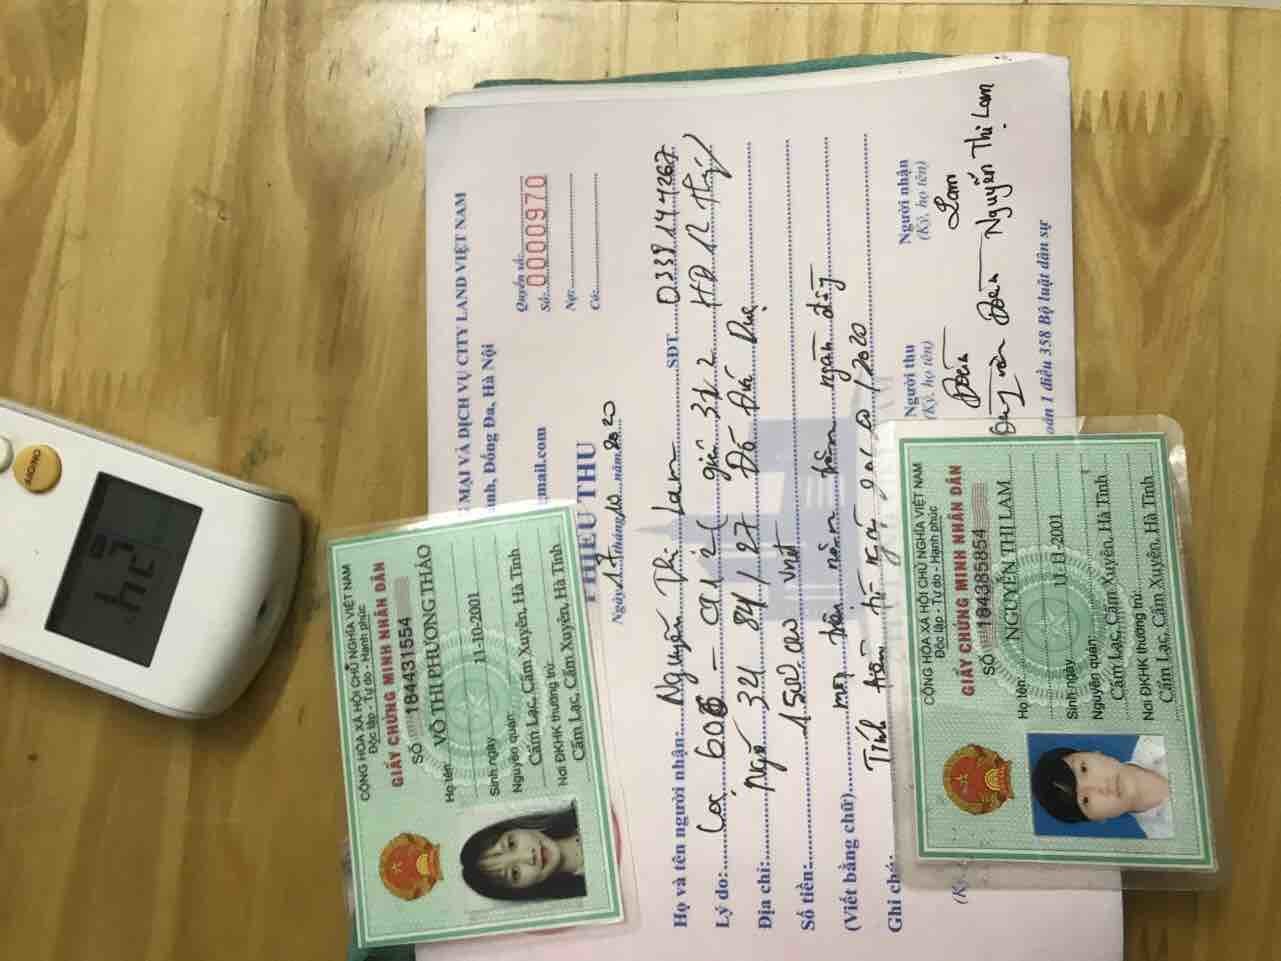 MẠI VÀ DỊCH VỤ CITY LAND VIỆT NAM
anh, Đống Đa, Hà Nội
mail.com
Quyển số:
Số: 0000970
Nợ:
Có:
PHIẾU THU
Ngày 17 tháng 10 năm 2020
Họ và tên người nhận: Nguyễn Thị Lam SĐT
Lý do: Cọc 606 giá 3tr2 HĐ 12 tháng
Địa chỉ: Ngõ 34 84/27
Số tiền: 1.500.000 vnđ
(Viết bằng chữ) năm trăm ngàn
Ghi chú: Tính tiền từ ngày
Người thu
(Ký, họ tên)
Người nhận
(Ký, họ tên)
Lam
Nguyễn Thị Lam
oản 1 điều 358 Bộ luật dân sự
CỘNG HÒA XÃ HỘI CHỦ NGHĨA VIỆT NAM
Độc lập - Tự do - Hạnh phúc
GIẤY CHỨNG MINH NHÂN DÂN
SỐ 184431554
Họ tên: VÕ THỊ PHƯƠNG THẢO
Sinh ngày 11-10-2001
Nguyên quán: Cẩm Lạc, Cẩm Xuyên, Hà Tĩnh
Nơi ĐKHK thường trú:
Cẩm Lạc, Cẩm Xuyên, Hà Tĩnh
CỘNG HÒA XÃ HỘI CHỦ NGHĨA VIỆT NAM
Độc lập - Tự do - Hạnh phúc
GIẤY CHỨNG MINH NHÂN DÂN
SỐ 184385854
Họ tên: NGUYỄN THỊ LAM
Sinh ngày 11-11-2001
Nguyên quán:
Cẩm Lạc, Cẩm Xuyên, Hà Tĩnh
Nơi ĐKHK thường trú:
Cẩm Lạc, Cẩm Xuyên, Hà Tĩnh
ON/OFF